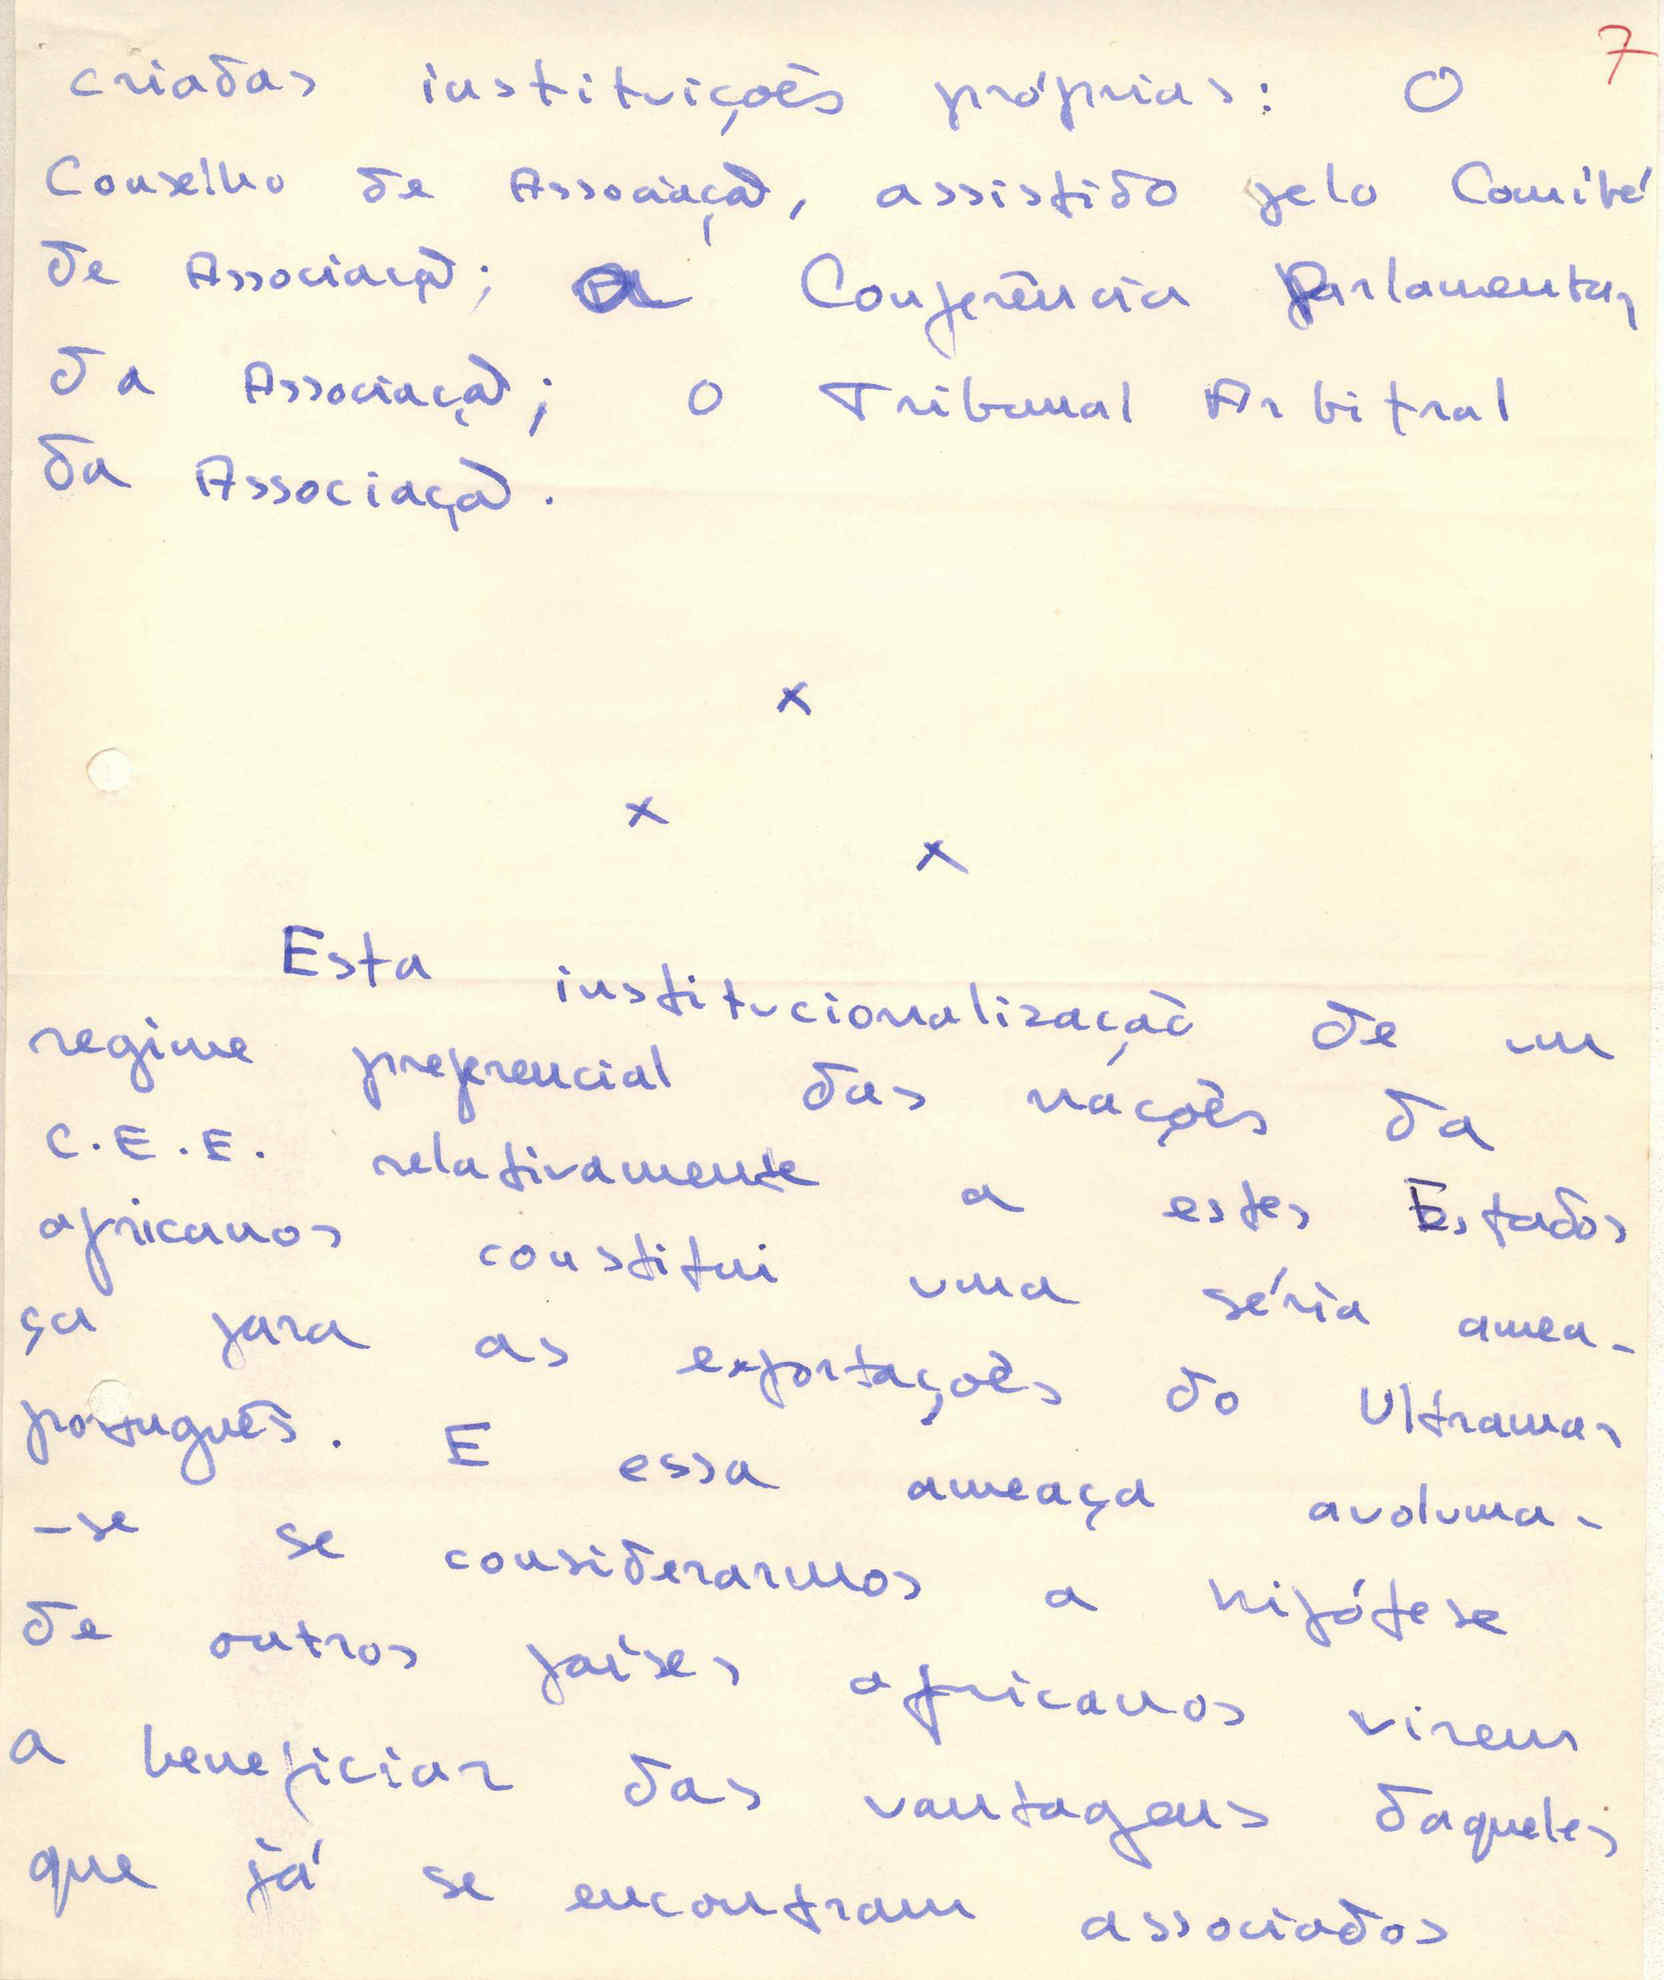 7
criadas instituições próprias: O
Conselho de Associação, assistido pelo Comité
de Associação; a Conferência Parlamentar
da Associação; o Tribunal Arbitral
da Associação.
x
x
x
Esta institucionalização de um
regime preferencial das nações da
C.E.E. relativamente a estes Estados
africanos constitui uma séria amea-
ça para as exportações do Ultramar
português. E essa ameaça avoluma-
-se se considerarmos a hipótese
de outros países africanos virem
a beneficiar das vantagens daqueles
que já se encontram associados